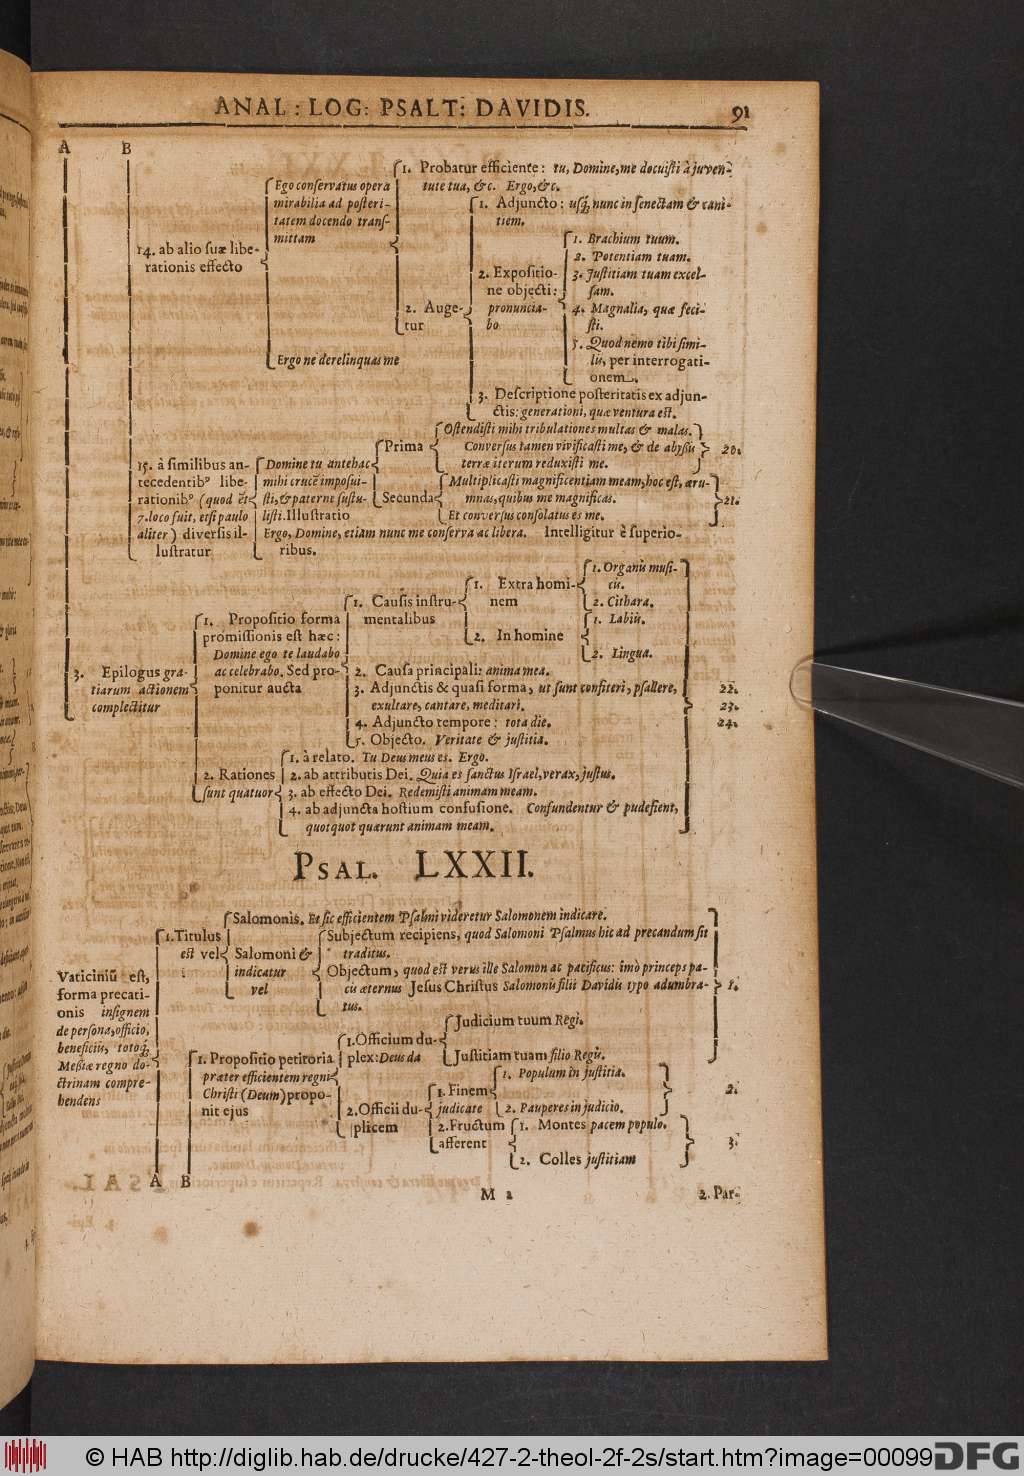 ANAL : LOG: PSALT: DAVIDIS.
91
A
B
14. ab alio suæ libe-
rationis effecto
Ego conservatus opera
mirabilia ad posteri-
tatem docendo trans-
mittam
1. Probatur efficiente: tu, Domine, me docuisti à juven-
tute tua, &c. Ergo, &c.
2. Auge-
tur
1. Adjuncto: usq; nunc in senectam & cani-
tiem.
2. Expositio-
ne objecti:
pronuncia-
bo
1. Brachium tuum.
2. Potentiam tuam.
3. Justitiam tuam excel-
sam.
4. Magnalia, quæ feci-
sti.
5. Quod nemo tibi simi-
lis, per interrogati-
onem.
3. Descriptione posteritatis ex adjun-
ctis: generationi, quæ ventura est.
Ergo ne derelinquas me
15. à similibus an-
tecedentibꝰ libe-
rationibꝰ (quod et
7. loco fuit, etsi paulo
aliter) diversis il-
lustratur
Domine tu antehac
mihi crucē imposui-
sti, & paterne sustu-
listi. Illustratio
Prima
Ostendisti mihi tribulationes multas & malas.
Conversus tamen vivificasti me, & de abyssis
terræ iterum reduxisti me.
20.
Secunda
Multiplicasti magnificentiam meam, hoc est, æru-
mnas, quibus me magnificas.
Et conversus consolatus es me.
21.
Ergo, Domine, etiam nunc me conserva ac libera. Intelligitur è superio-
ribus.
3. Epilogus gra-
tiarum actionem
complectitur
1. Propositio forma
promissionis est hæc:
Domine ego te laudabo
ac celebrabo. Sed pro-
ponitur aucta
1. Causis instru-
mentalibus
1. Extra homi-
nem
1. Organis musi-
cis.
2. Cithara.
2. In homine
1. Labiis.
2. Lingua.
2. Causa principali: anima mea.
3. Adjunctis & quasi forma, ut sunt confiteri, psallere,
exultare, cantare, meditari.
4. Adjuncto tempore: tota die.
5. Objecto. Veritate & justitia.
22.
23.
24.
2. Rationes
sunt quatuor
1. à relato. Tu Deus meus es. Ergo.
2. ab attributis Dei. Quia es sanctus Israel, verax, justus.
3. ab effecto Dei. Redemisti animam meam.
4. ab adjuncta hostium confusione. Confundentur & pudefient,
quotquot quærunt animam meam.
PSAL. LXXII.
Vaticiniū est,
forma precati-
onis insignem
de persona, officio,
beneficiis, totoq;
Messiæ regno do-
ctrinam compre-
hendens
1. Titulus
est vel
Salomonis. Et sic efficientem Psalmi videretur Salomonem indicare.
Salomoni &
indicatur
vel
Subjectum recipiens, quod Salomoni Psalmus hic ad precandum sit
traditus.
Objectum, quod est verus ille Salomon ac pacificus: imò princeps pa-
cis æternus Jesus Christus Salomonis filii Davidis typo adumbra-
tus.
1.
1. Propositio petitoria
præter efficientem regni
Christi (Deum) propo-
nit ejus
1. Officium du-
plex: Deus da
Judicium tuum Regi.
Justitiam tuam filio Regis.
2. Officii du-
plicem
1. Finem
judicate
1. Populum in justitia.
2. Pauperes in judicio.
2.
2. Fructum
afferent
1. Montes pacem populo.
2. Colles justitiam
3.
A
B
M 2
2. Par-
© HAB http://diglib.hab.de/drucke/427-2-theol-2f-2s/start.htm?image=00099
DFG